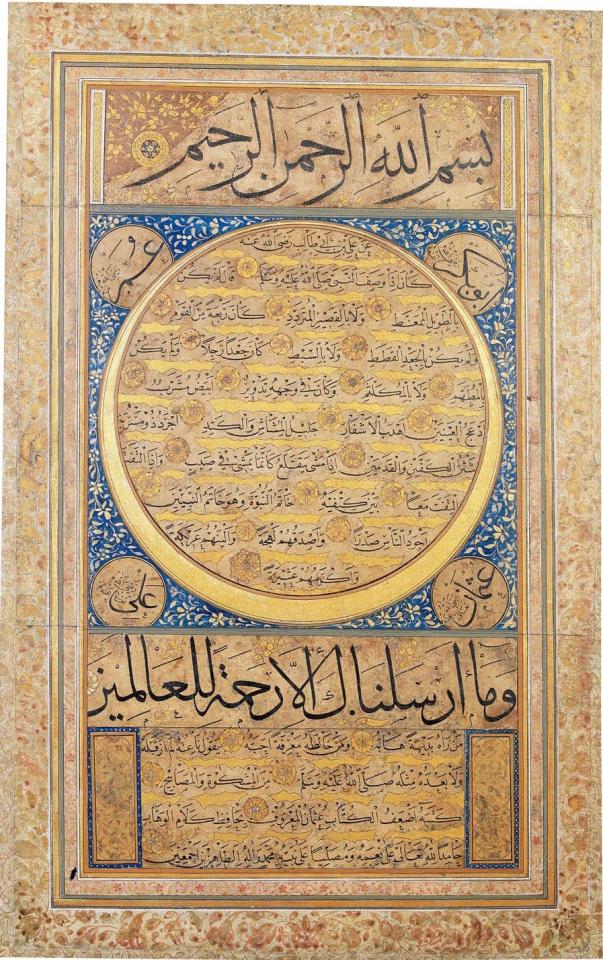 بسم الله الرحمن الرحيم
ابوبكر
عمر
عن علي بن ابي طالب رضي الله عنه
كان اذا وصف النبي صلى الله عليه وسلم قال لم يكن
بالطويل الممغط ولا بالقصير المتردد كان ربعة من القوم
ولم يكن بالجعد القطط ولا بالسبط كان جعدا رجلا ولم يكن
بالمطهم ولا بالمكلثم وكان في وجهه تدوير ابيض مشرب
ادعج العينين اهدب الاشفار جليل المشاش والكتد اجرد ذو مسربة
شثن الكفين والقدمين اذا مشى يتقلع كأنما يمشي في صبب واذا التفت
التفت معا بين كتفيه خاتم النبوة وهو خاتم النبيين
اجود الناس صدرا واصدقهم لهجة والينهم عريكة
واكرمهم عشرة
عثمان
علي
وما ارسلناك الا رحمة للعالمين
من رآه بديهة هابه ومن خالطه معرفة احبه يقول ناعته لم ار قبله
ولا بعده مثله صلى الله عليه وسلم من المشكوة والمصابيح
كتبه اضعف الكتاب عثمان المعروف بحافظ كلام الوهاب
حامدا لله تعالى على نعمه ومصليا على نبيه محمد وآله الطاهرين اجمعين